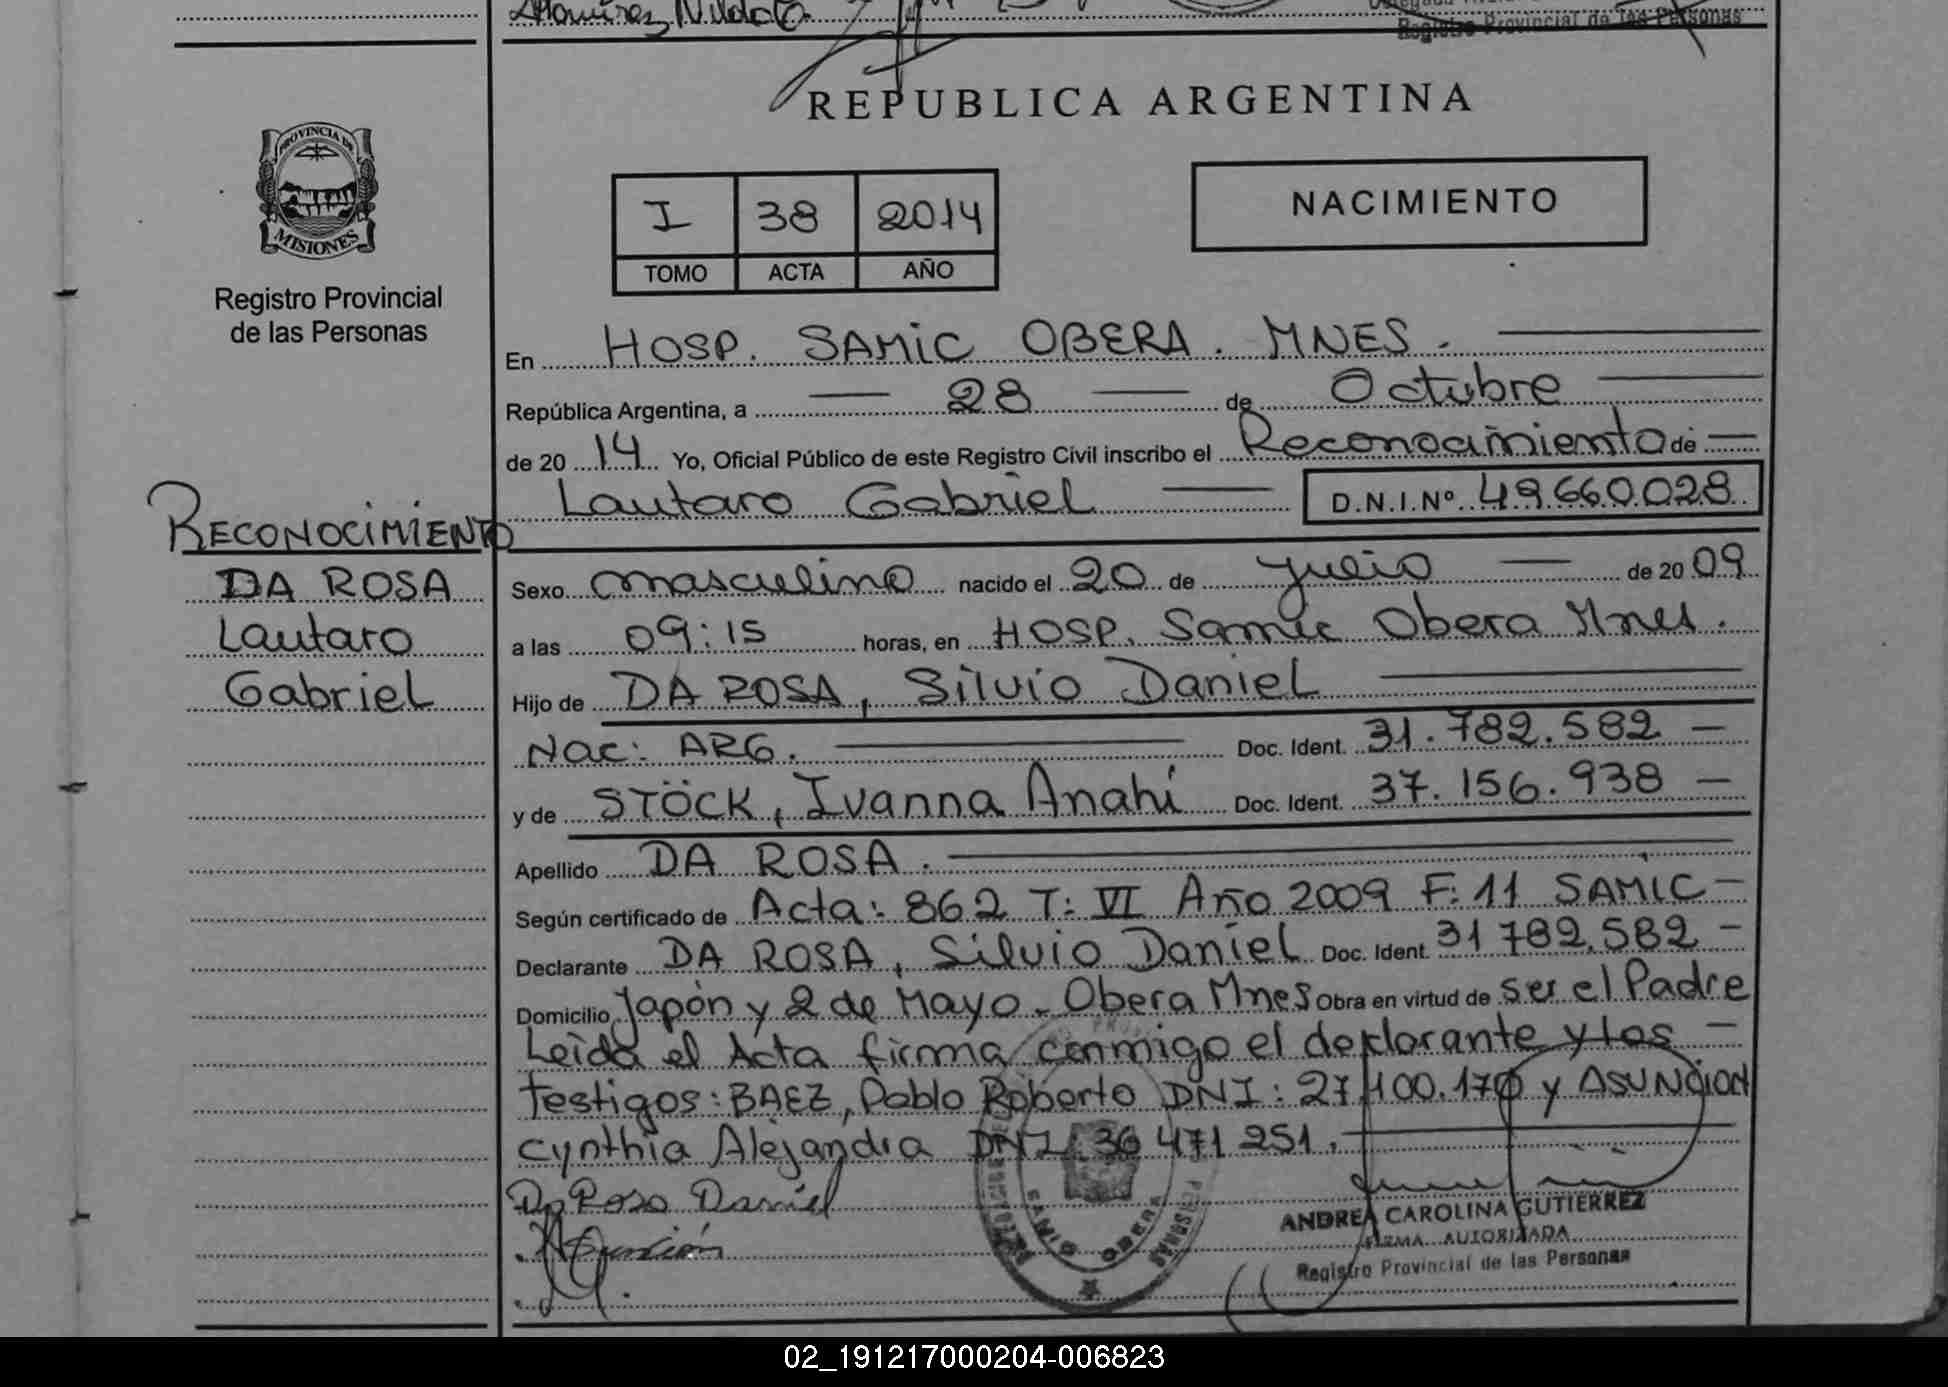 Ramirez Nilda
Registro Provincial de las Personas
REPUBLICA ARGENTINA
PROVINCIA DE
MISIONES
Registro Provincial
de las Personas
I 38 2014
TOMO ACTA AÑO
NACIMIENTO
En HOSP. SAMIC OBERA. MNES.
República Argentina, a 28 de Octubre
de 2014 Yo, Oficial Público de este Registro Civil inscribo el Reconocimiento de
Lautaro Gabriel D.N.I.Nº 49660.028
RECONOCIMIENTO
DA ROSA
Lautaro
Gabriel
Sexo masculino nacido el 20 de julio de 2009
a las 09:15 horas, en HOSP. Samic Obera Mnes.
Hijo de DA ROSA, Silvio Daniel
Nac: ARG. Doc. Ident. 31.782.582
y de STÖCK, Ivanna Anahí Doc. Ident. 37.156.938
Apellido DA ROSA.
Según certificado de Acta: 862 T: VI Año 2009 F: 11 SAMIC
Declarante DA ROSA, Silvio Daniel Doc. Ident. 31782.582
Domicilio Japón y 2 de Mayo. Obera Mnes Obra en virtud de ser el Padre
Leida el Acta firma conmigo el declarante y los
testigos: BAEZ, Pablo Roberto DNI: 27.100.170 y ASUNCION
Cynthia Alejandra DNI: 36 471 251.
Da Rosa Daniel
Asunción
SAMIC OBERA
ANDREA CAROLINA GUTIERREZ
FIRMA AUTORIZADA
Registro Provincial de las Personas
02_191217000204-006823